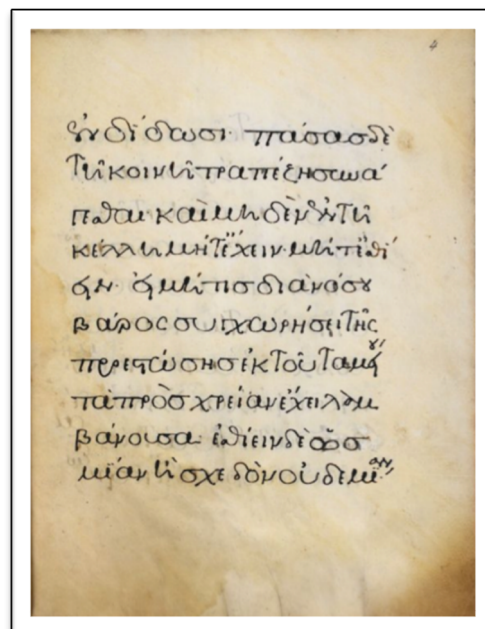 4
ὃν δίδωσι· πάσας δὲ
τῇ κοινῇ τραπέζῃ
καὶ μηδὲν ἐν τῇ
κέλλῃ μήτ' ἔχειν· μήτ' ἐσθί
ειν· εἰ μήτις διὰ νόσου
βάρος συγχωρήσει τῆς
προεστώσης ἐκ τοῦ ταμεί
τὰ πρὸς χρείαν ἔχει λαμ
βάνουσα· ἐσθίειν δὲ ὡς
μίαν ἢ σχεδὸν οὐδεμίαν